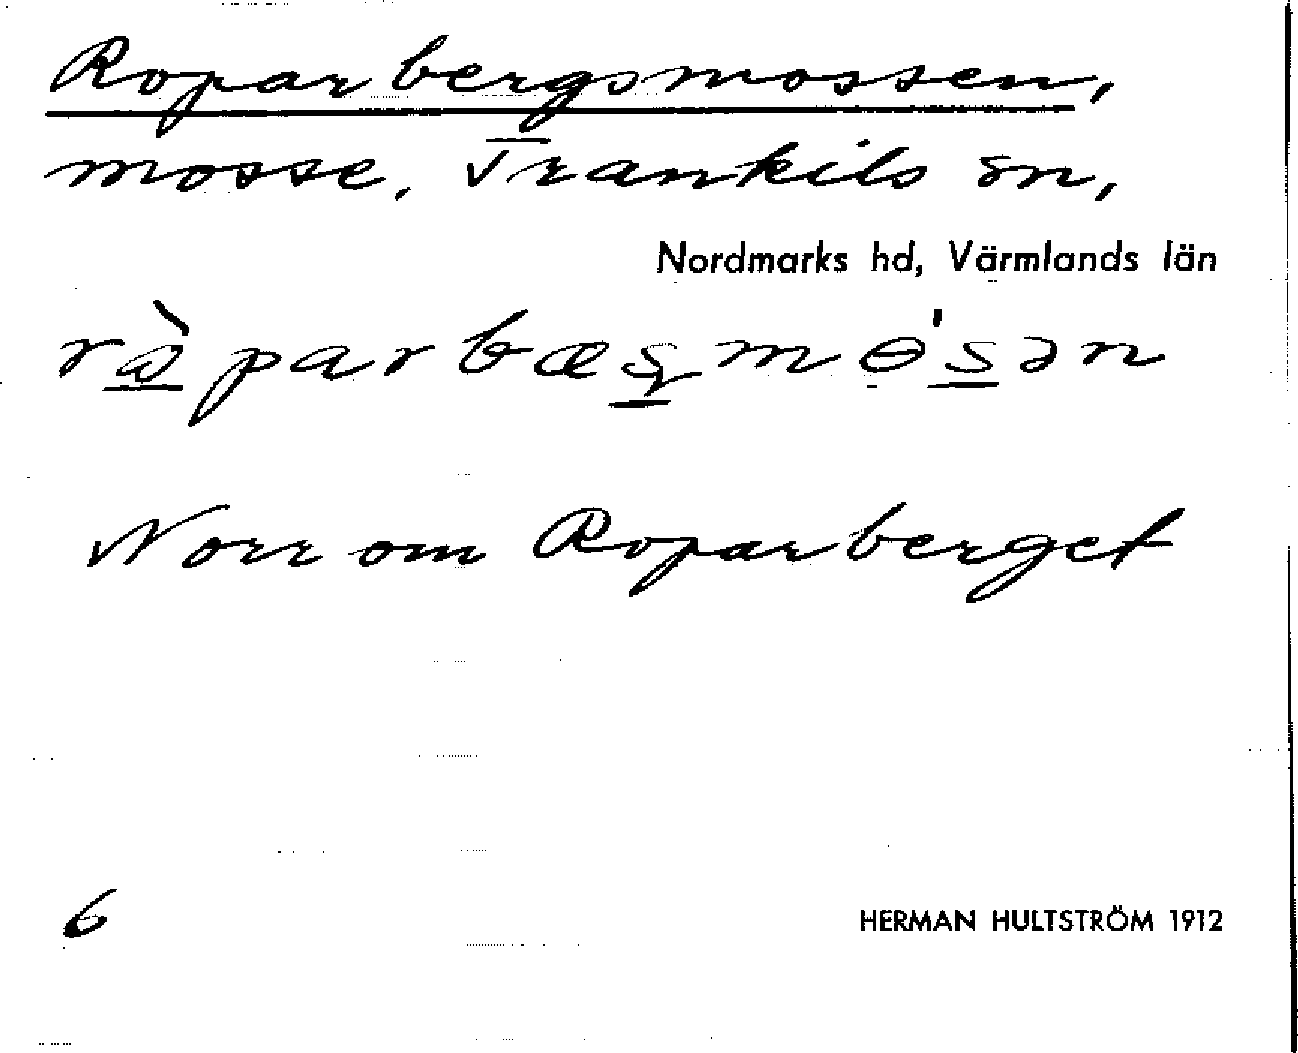 Roparbergsmossen,
mosse. Trankils sn,
Nordmarks hd, Värmlands län
Norr om Roparberget
6
HERMAN HULTSTRÖM 1912